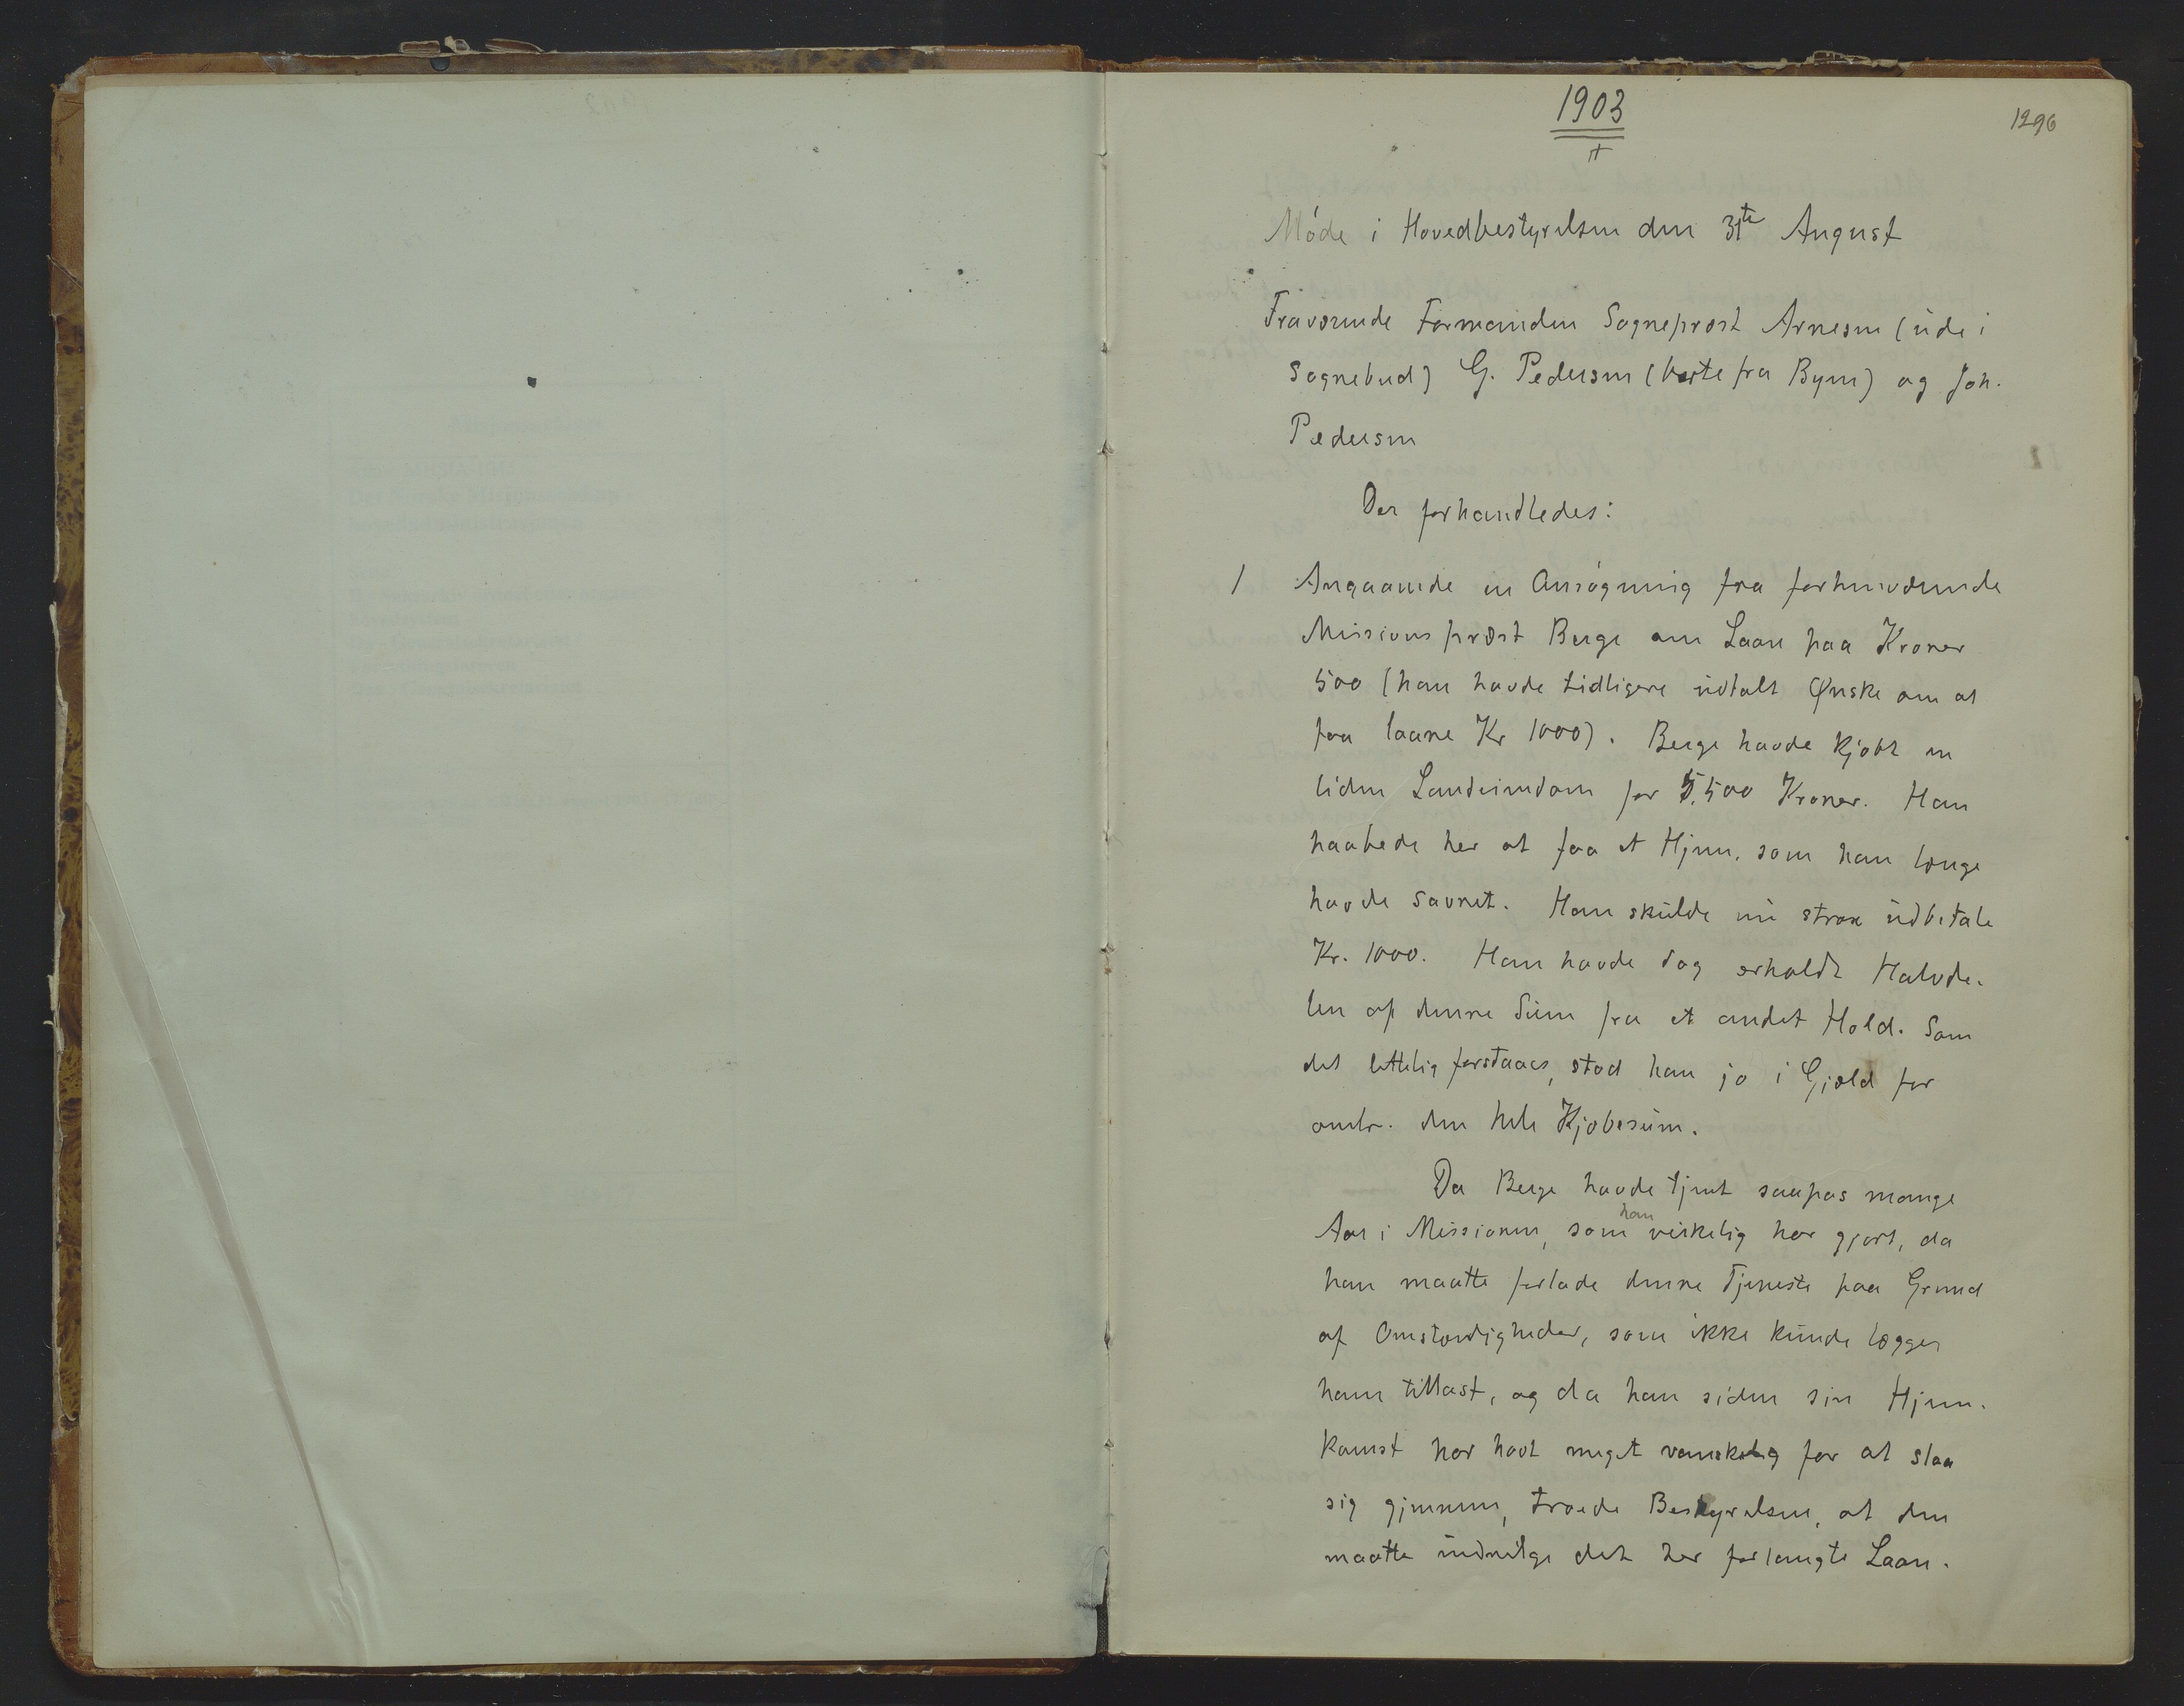 1903
1296
Møde i Hovedbestyrelsen den 31te August
Fraværende Formanden Sogneprest Arnesen (ude i
Sognebud) G. Pedersen (borte fra Byen) og Joh.
Pedersen
Der forhandledes:
1 Angaaende en Ansøgning fra forhenværende
Missionsprest Berge om Laan paa Kroner
500 (han havde tidligere udtalt Ønske om at
faa laane Kr 1000). Berge havde kjøbt en
liden Landeiendom for 5,500 Kroner. Han
haabede her at faa et Hjem, som han længe
havde savnet. Han skulde nu strax udbetale
Kr. 1000. Han havde dog erholdt Halvde-
len af denne Sum fra et andet Hold. Som
det lettelig forstaaes, stod han jo i Gjæld for
omtr. den hele Kjøbesum.
Da Berge havde tjent saapas mange
Aar i Missionen, som han virkelig har gjort, da
han maatte forlade denne Tjeneste paa Grund
af Omstændigheder, som ikke kunde lægges
ham tillast, og da han siden sin Hjem-
komst har havt meget vanskelig for at slaa
sig gjennem, troede Bestyrelsen, at den
maatte indvilge det her forlangte Laan.